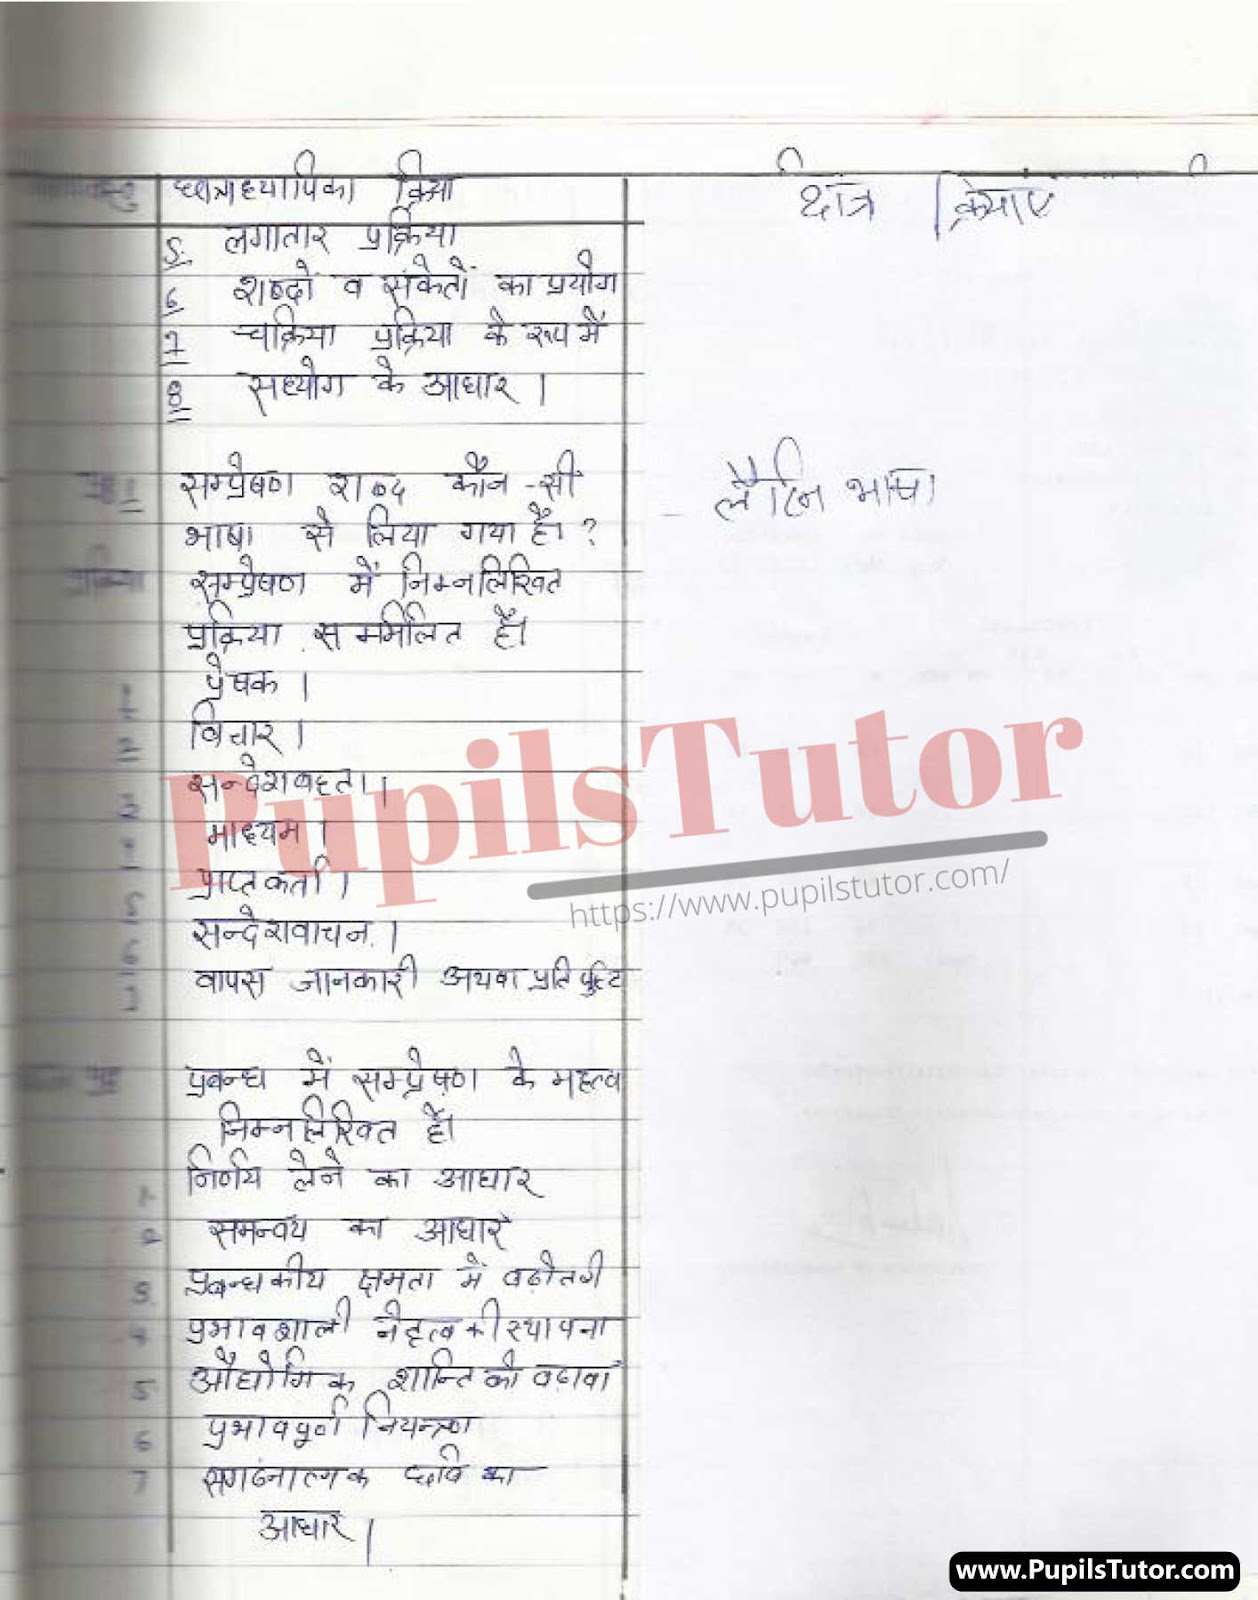 छात्राध्यापिका क्रिया
छात्र क्रियाए
5. लगातार प्रक्रिया
6 शब्दों व संकेतों का प्रयोग
7 चक्रिया प्रक्रिया के रूप में
8 सहयोग के आधार ।
सम्प्रेषण शब्द कौन-सी
भाषा से लिया गया है। ?
- लैटिन भाषा
प्रक्रिया सम्प्रेषण में निम्नलिखित
प्रक्रिया सम्मिलित है।
प्रेषक ।
विचार ।
सन्देशबद्दता ।
माध्यम ।
प्राप्तकर्ता ।
सन्देशवाचन ।
वापस जानकारी अथवा प्रतिपुष्टि
प्रबन्ध में सम्प्रेषण के महत्व
निम्नलिखित है।
निर्णय लेने का आधार
2 समन्वय का आधार
3. प्रबन्धकीय क्षमता में बढ़ोतरी
4 प्रभावशाली नेतृत्व की स्थापना
5 औद्योगिक शान्ति को बढ़ावा
6 प्रभावपूर्ण नियन्त्रण
7 सगठनात्मक छवि का
आधार ।
PupilsTutor
https://www.pupilstutor.com/
www.PupilsTutor.com